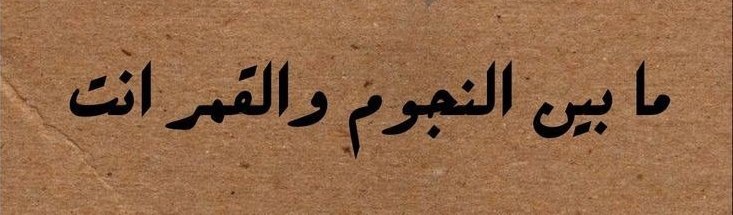 ما بين النجوم والقمر انت